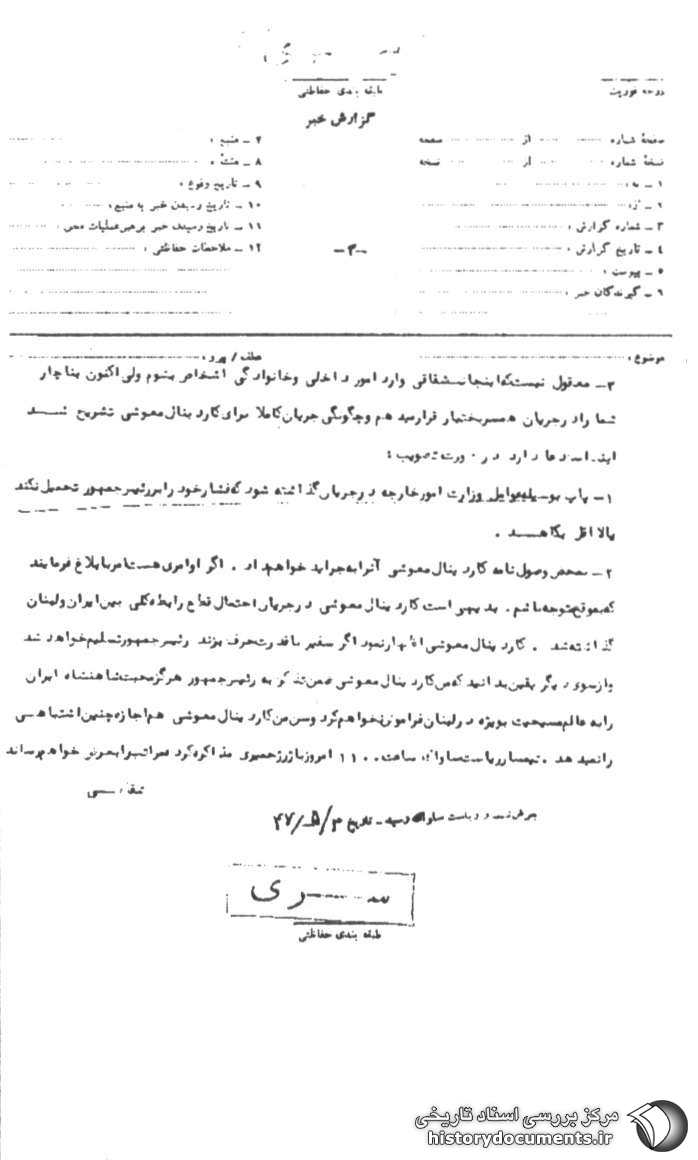 طبقه بندی حفاظتی
درجه فوریت
گزارش خبر
صفحهٔ شماره از صفحه
نسخهٔ شماره از نسخه
۱ ـ به :
۲ ـ از :
۳ ـ شماره گزارش :
۴ ـ تاریخ گزارش :
۵ ـ پیوست :
۶ ـ گیرندگان خبر :
۷ ـ منبع :
۸ ـ منشأ :
۹ ـ تاریخ وقوع :
۱۰ ـ تاریخ رسیدن خبر به منبع :
۱۱ ـ تاریخ رسیدن خبر به رهبر عملیات محلی :
۱۲ ـ ملاحظات حفاظتی :
ـ۳ـ
موضوع : عطف / پیرو :
۳ـ معقول نیست که اینجانب شفاقی وارد امور داخلی و خانوادگی اشخاص بشوم ولی اکنون بناچار
شما را در جریان همسر بختیار قرار میدهم و چگونگی جریان کاملا برای کاردینال معوشی تشریح شد
استدعا دارد در صورت تصویب :
۱ـ پاپ بوسیله عوامل وزارت امور خارجه در جریان گذاشته شود که فشار خود را بر رئیس جمهور تحمیل نکند
یا لااقل بکاهد .
۲ـ بمحض وصول نامه کاردینال معوشی آنرا به جراید خواهم داد . اگر اوامری هست امر با بلاغ فرمایند
که بموقع متوجه باشم . بدیهی است کاردینال معوشی در جریان احتمال قطع رابطه کلی بین ایران و لبنان
گذاشته شد . کاردینال معوشی اظهار نمود اگر سفیر با قدرت حرف بزند رئیس جمهور تسلیم خواهد شد
و از سوی دیگر یقین بدانید که من کاردینال معوشی ضمن تذکر به رئیس جمهور هرگز محبت شاهنشاه ایران
را به عالم مسیحیت بویژه در لبنان فراموش نخواهم کرد و من من کاردینال معوشی هم اجازه چنین اشتباهی
را نمیدهد . تیمسار ریاست ساواک ساعت ۱۱۰۰ امروز با ژرژ حمیری مذاکره کرد مراتب را بعرض خواهم رساند
ریاست ساواک رسید ـ تاریخ ۴۷/۵/۳
سری
طبقه بندی حفاظتی
مرکز بررسی اسناد تاریخی
historydocuments.ir